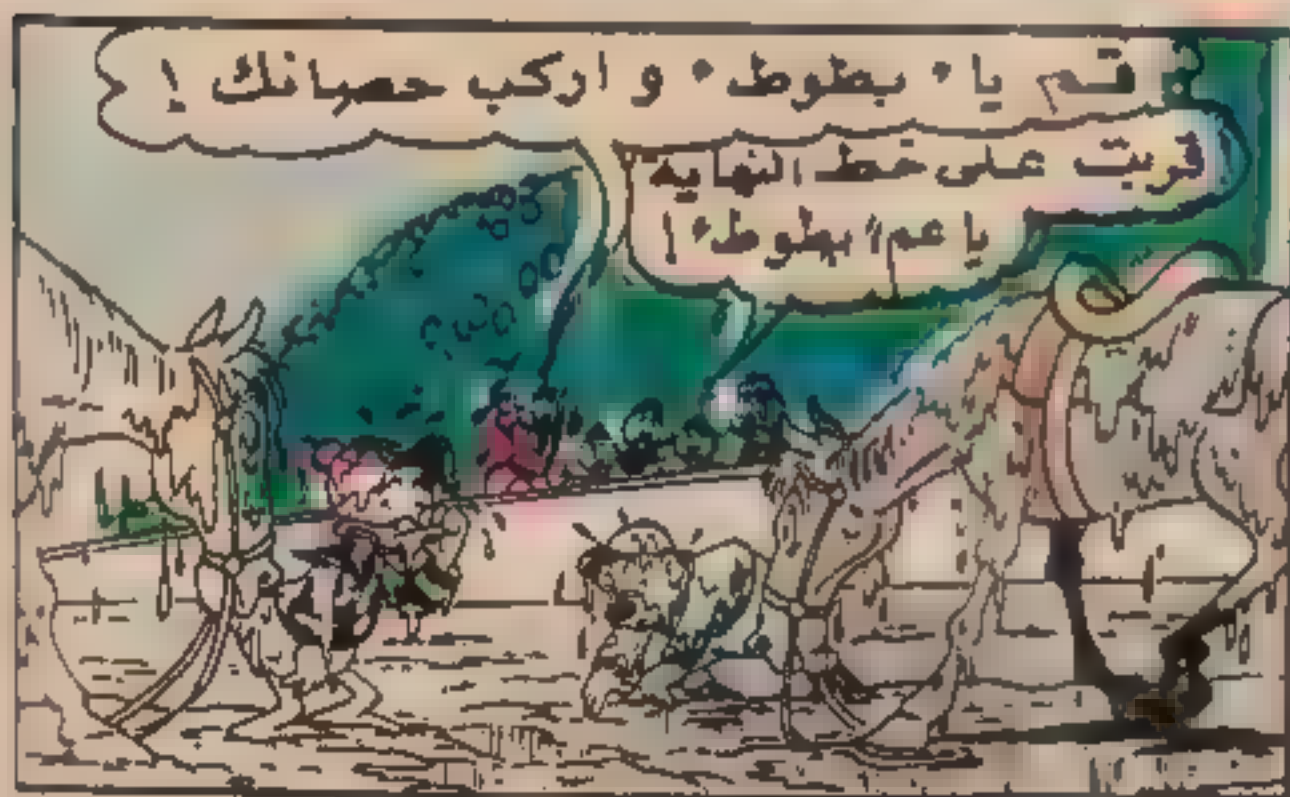 قم يا "بطوط" و اركب حصانك !
قربت على خط النهايه
يا عم "بطوط" !